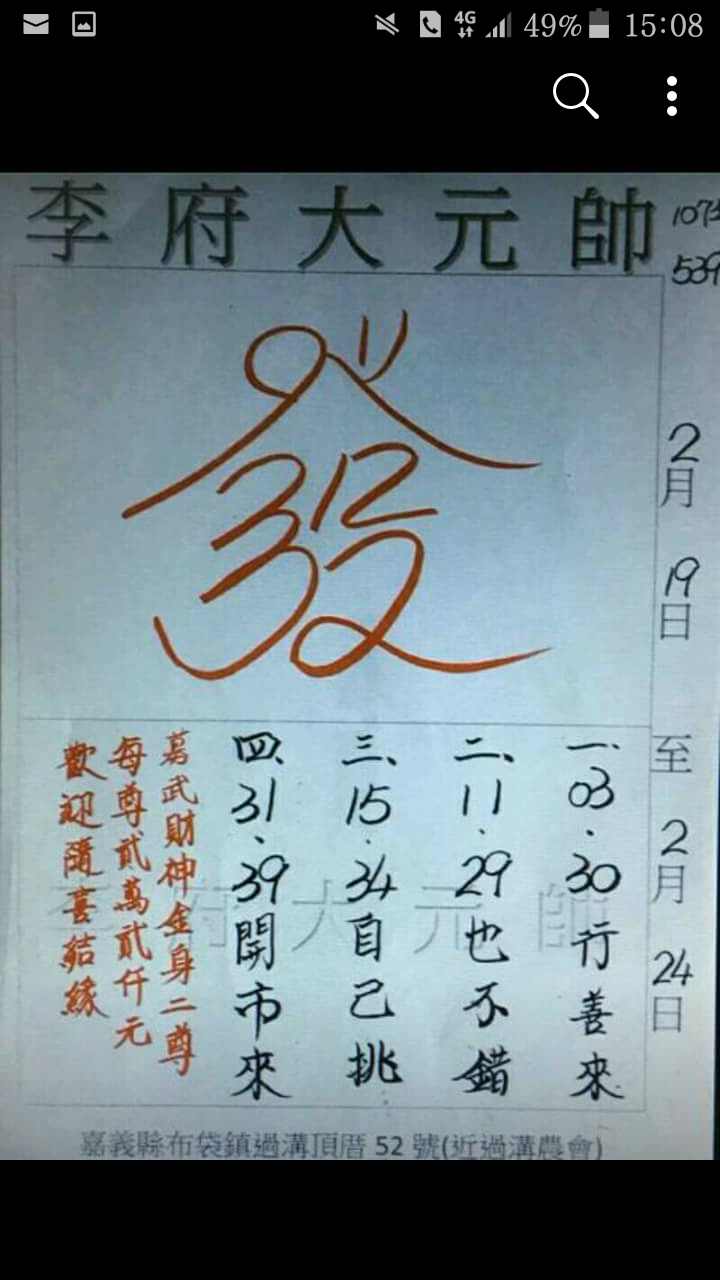 4G 49% 15:08
李府大元帥
539
2月19日至2月24日
發
一、03.30行善來
二、11.29也不錯
三、15.34自己挑
四、31.39開市來
武財神金身二尊
每尊貳萬貳仟元
歡迎隨喜結緣
李府大元帥
嘉義縣布袋鎮過溝頂厝52號(近過溝農會)